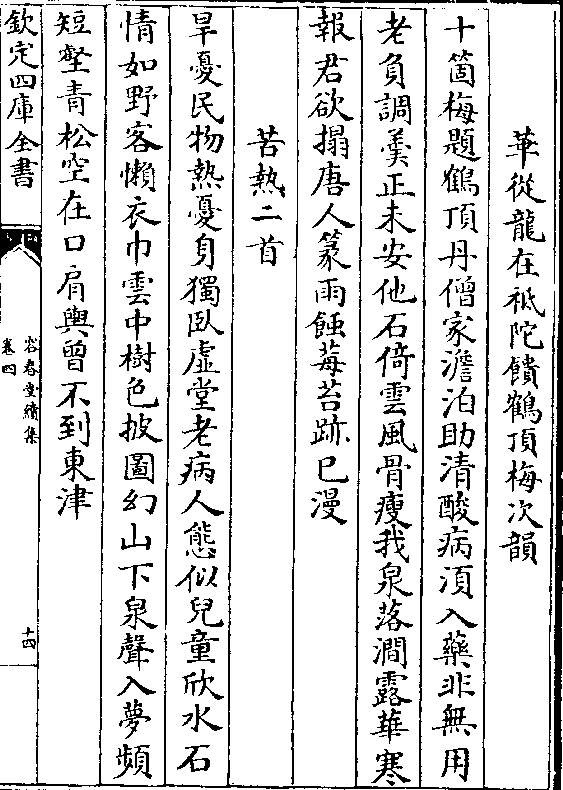 華從龍在祗陀饋鶴頂梅次韻
十箇梅題鶴頂丹僧家澹泊助清酸病湏入藥非無用
老負調羮正未安他石倚雲風骨瘦我泉落澗露華寒
報君欲搨唐人篆雨蝕莓苔跡已漫
苦熱二首
旱憂民物熱憂身獨卧虚堂老病人態似兒童欣水石
情如野客懶衣巾雲中樹色披圖幻山下泉聲入夢頻
短壑青松空在口肩輿曾不到東津
欽定四庫全書
容春堂續集
卷四
十四